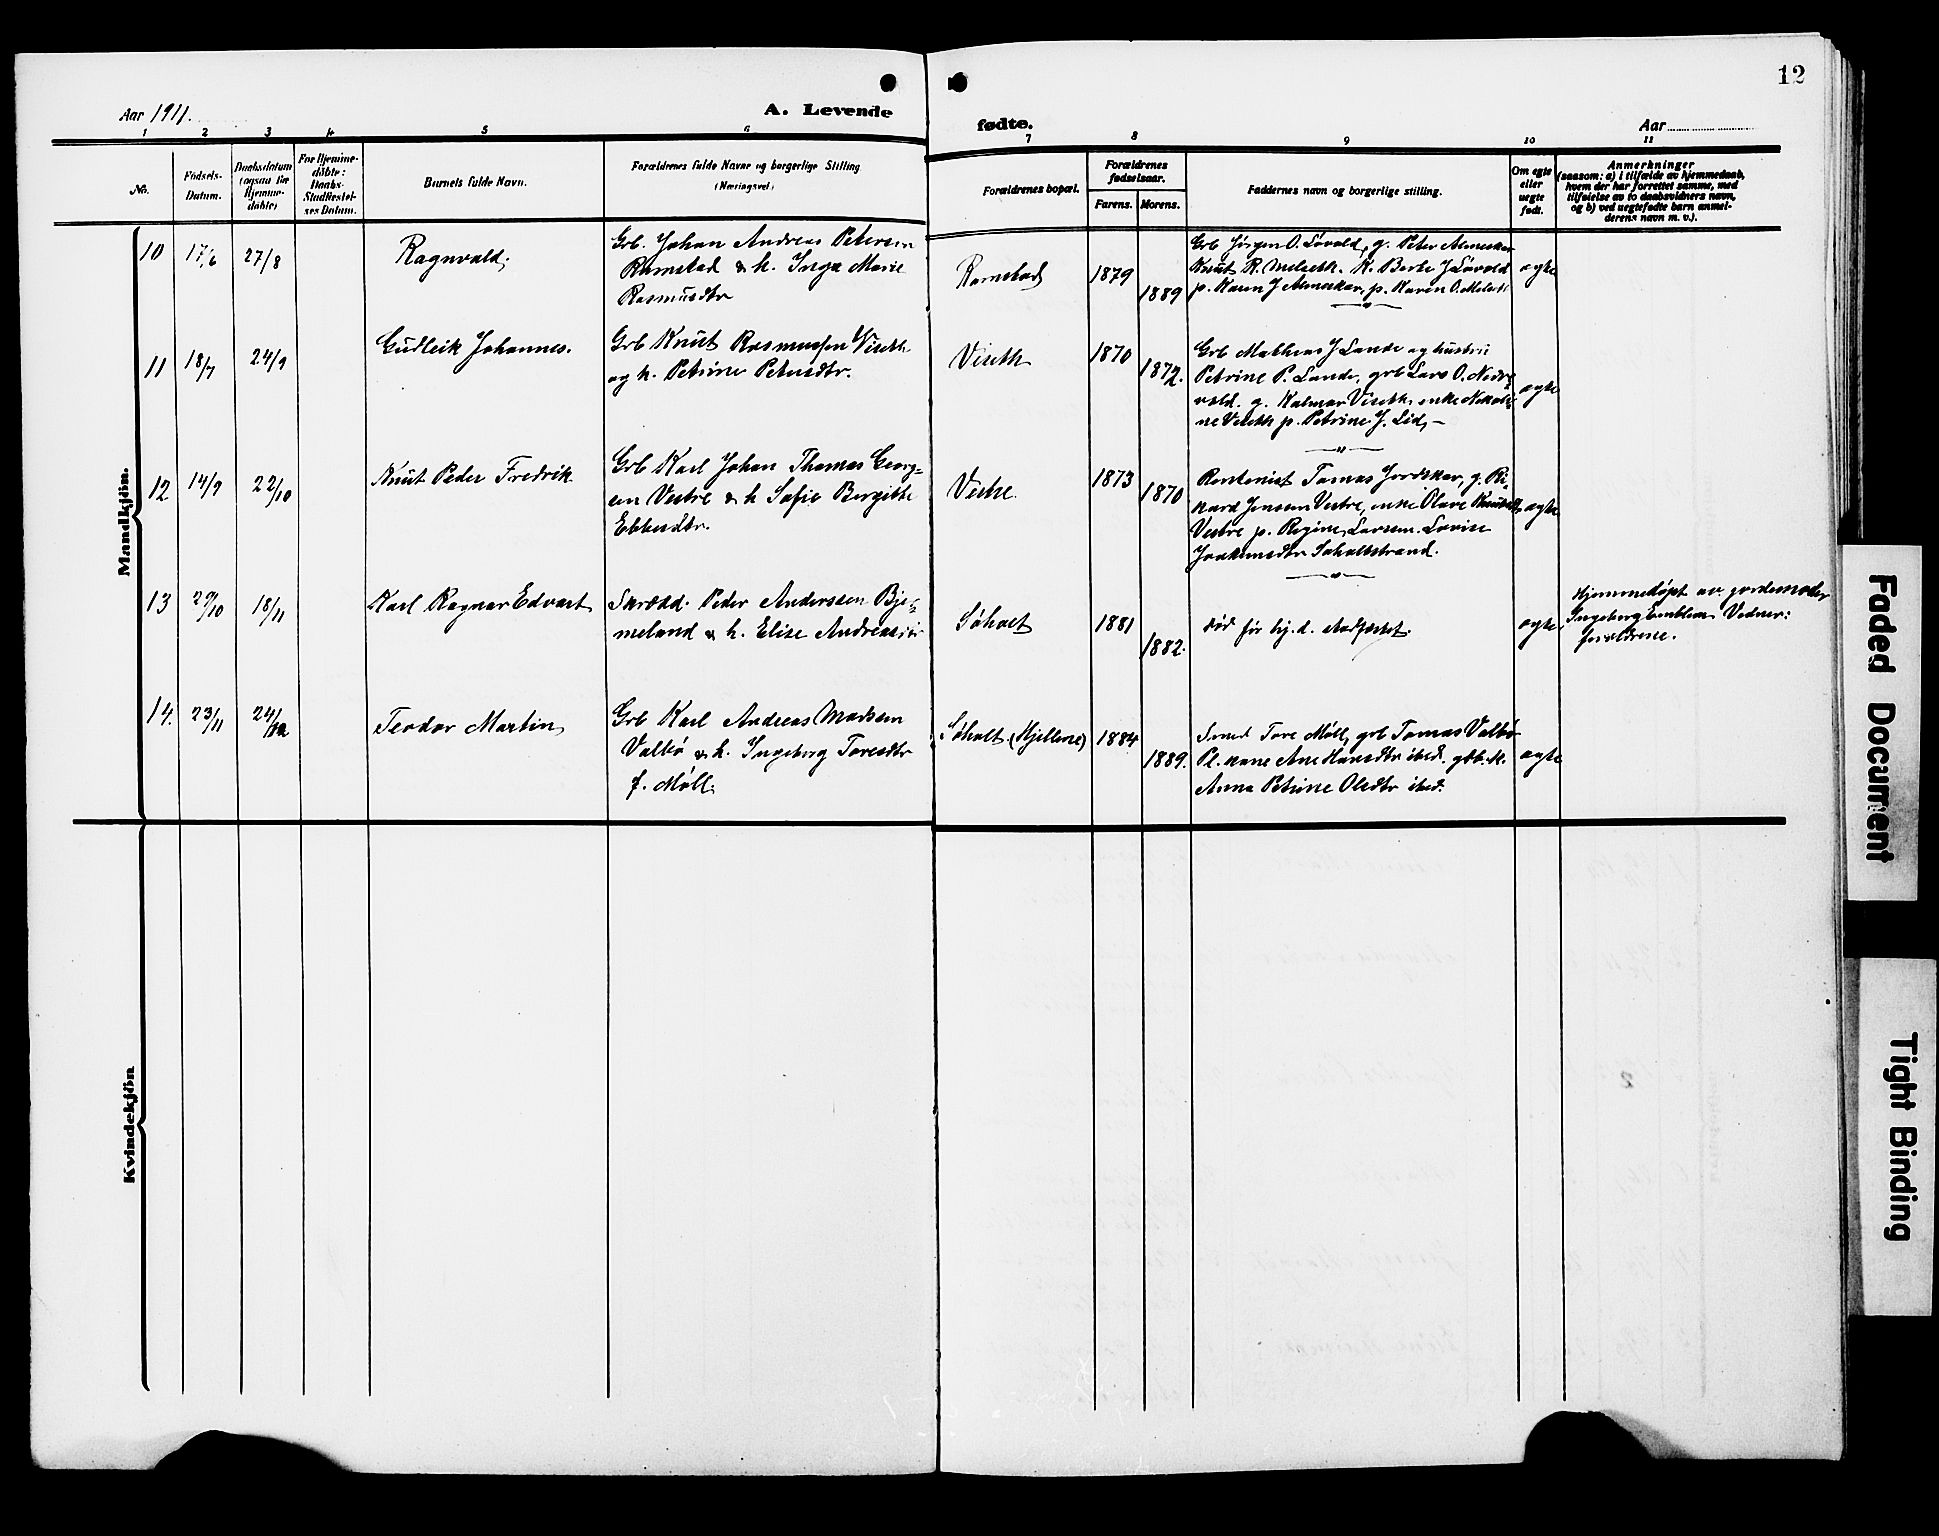 12
Aar 1911.
A. Levende
fødte.
Aar
1 2 3 4 5 6 7 8 9 10 11
No.
Fødsels-
Datum.
Daabsdatum
(ogsaa for
Hjemme-
døbte)
For Hjemme-
døbte:
Daabs-
Stadfestel-
ses Datum.
Barnets fulde Navn.
Forældrenes fulde Navne og borgerlige Stilling
(Næringsvei)
Forældrenes bopæl.
Forældrenes
fødselsaar.
Farens. Morens.
Faddernes navn og borgerlige stilling.
Om egte
eller
uegte
født.
Anmerkninger
(saasom: a) i tilfælde av hjemmedaab,
hvem der har forrettet samme, med
tilføielse av to daabsvidners navn,
og b) ved uegtefødte barn anmel-
derens navn m. v.).
Mandkjön.
10 17/6 27/8
Ragnvald.
Grb. Johan Andreas Petersen
Ramstad & h. Inga Marie
Rasmusdtr
Ramstad
1879
1889
Grb Jørgen O. Løvold, g. Peter
Knut R. Melseth. K. Berte J Løvold
p. Karen J p. Karen O.
ægte
11 18/7 24/9
Gudleik Johannes.
Grb Knut Rasmussen Viseth
og h. Petrine Petersdtr.
Viseth
1870
1872.
Grb Mathias J Lande og hustru
Petrine P. Lande, grb Lars O. Nedre
vold. g. Kalmar Viseth, enke Nikoli
ne Viseth p. Petrine J. Lid, –
ægte
12 14/9 22/10
Knut Peder Fredrik
Grb Karl Johan Thomas Georg=
sen Vestre & h Sofie Bergitte
Ebbesdtr.
Vestre.
1873
1870
Rentenist Tomas g. Ri-
kard Jensen Vestre, enke Olave
Vestre p. Regine Larsen. Lovise
Joakimsdtr Søholtstrand.
ægte
13 29/10 18/11
Karl Ragnar Edvart
Skrædd. Peder Anderssen Bjø=
meland & h. Elise Andreasdtr
Søholt
1881
1882.
død før hj. d. stadfæstet.
ægte
Hjemmedøpt av jordemoder
Ingeborg Emblem Vidner:
forældrene.
14. 23/11 24/12
Teodor Martin
Grb Karl Andreas Madsen
Valbø & h. Ingeborg Toresdtr
f. Møll.
Søholt (Hjellene)
1884
1889.
Smed Tore Møll, grb Tomas Valbø
Pl. kone Ane Hansdtr ibid. gbr. k.
Anna Petrine Olsdtr ibid.
ægte
Kvindekjön
2
Faded Document
Tight Binding